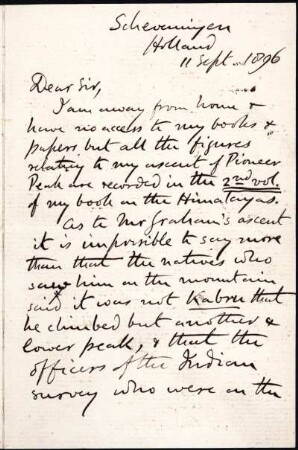 Scheveningen
Holland
11 Sept. 1896
Dear Sir,
I am away from home &
have no access to my books &
papers but all the figures
relating to my ascent of Pioneer
Peak are recorded in the 2nd vol.
of my book on the Himalayas.
As to Mr Graham's ascent
it is impossible to say more
than that the natives who
saw him on the mountain
said it was not Kabru that
he climbed but another &
lower peak, & that the
officers of the Indian
survey who were on the